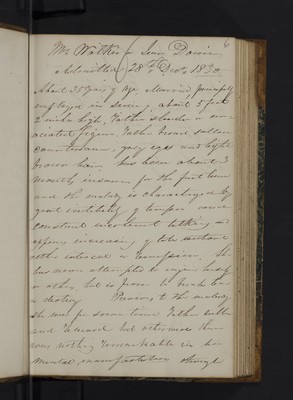 6
Admitted 28th Decr 1830
About 35 years of age, Married, principally
employed in sewing, about 5 feet
2 inches high, rather slender or em-
aciated figure, rather broad sallow
countenance, grey eyes and light
brown hair, has been about 3
months insane for the first time
and the malady is characterized by
great irritability of temper some
constant incoherent talking and
of late
or remission. She
has never attempted to injure herself
or others but is prone to break
or destroy Previous to the malady
she was for some time rather dull
and reserved but otherwise there
was nothing remarkable in her
mental manifestation though